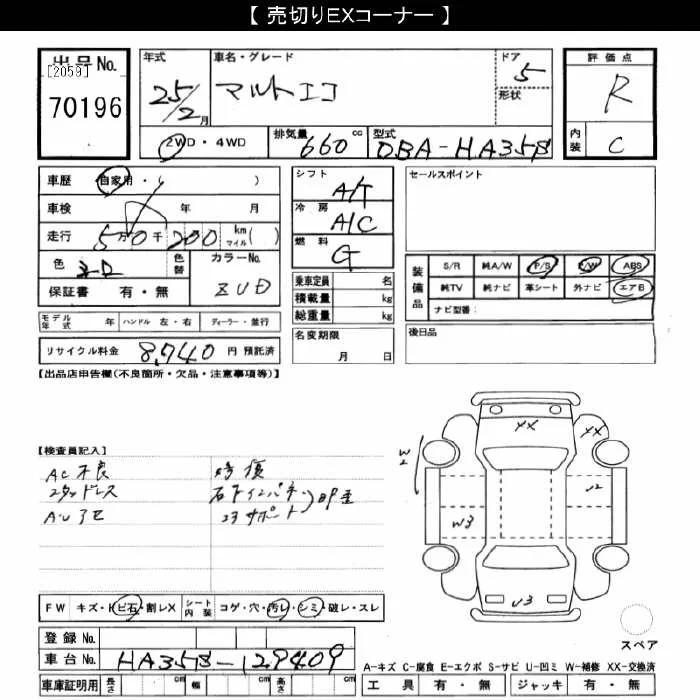 【 売切りEXコーナー 】
出品No.
[2059]
70196
年式 25/2月
車名・グレード
アルトエコ
ドア 5
形状
評価点 R
内装 C
2WD・4WD
排気量 660 cc
型式 DBA-HA35S
車歴 自家用・( )
車検 年 月
走行 5万0千200 km マイル( )
色
色替
カラーNo. ZUD
保証書 有・無
シフト A/T
冷房 A/C
燃料 G
乗車定員 名
積載量 kg
総重量 kg
セールスポイント
装備品
S/R 純A/W P/S P/W ABS
純TV 純ナビ 革シート 外ナビ エアB
ナビ型番:
モデル年式 年 ハンドル 左・右 ディーラー・並行
リサイクル料金 8,740 円 預託済
名変期限 月 日
後日品
【出品店申告欄(不良箇所・欠品・注意事項等)】
【検査員記入】
AC不良
スタッドレス
修復
コアサポート
XX XX
W2
U2
W3
U3
FW キズ・トビ石・割レX
シート内装 コゲ・穴・汚レ・シミ・破レ・スレ
スペア
登録No.
車台No. HA35S-129409
A-キズ C-腐食 E-エクボ S-サビ U-凹ミ W-補修 XX-交換済
車庫証明用 長さ cm 幅 cm 高さ cm
工具 有・無 ジャッキ 有・無